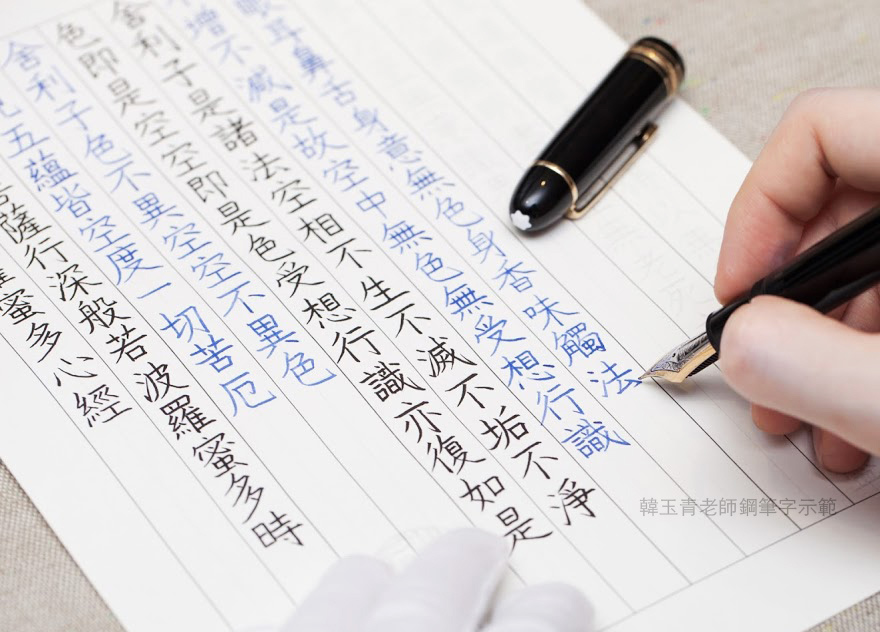 蜜多心經
菩薩行深般若波羅蜜多時
見五蘊皆空度一切苦厄
舍利子色不異空空不異色
色即是空空即是色受想行識亦復如是
舍利子是諸法空相不生不滅不垢不淨
增不減是故空中無色無受想行識
眼耳鼻舌身意無色身香味觸法
韓玉青老師鋼筆字示範